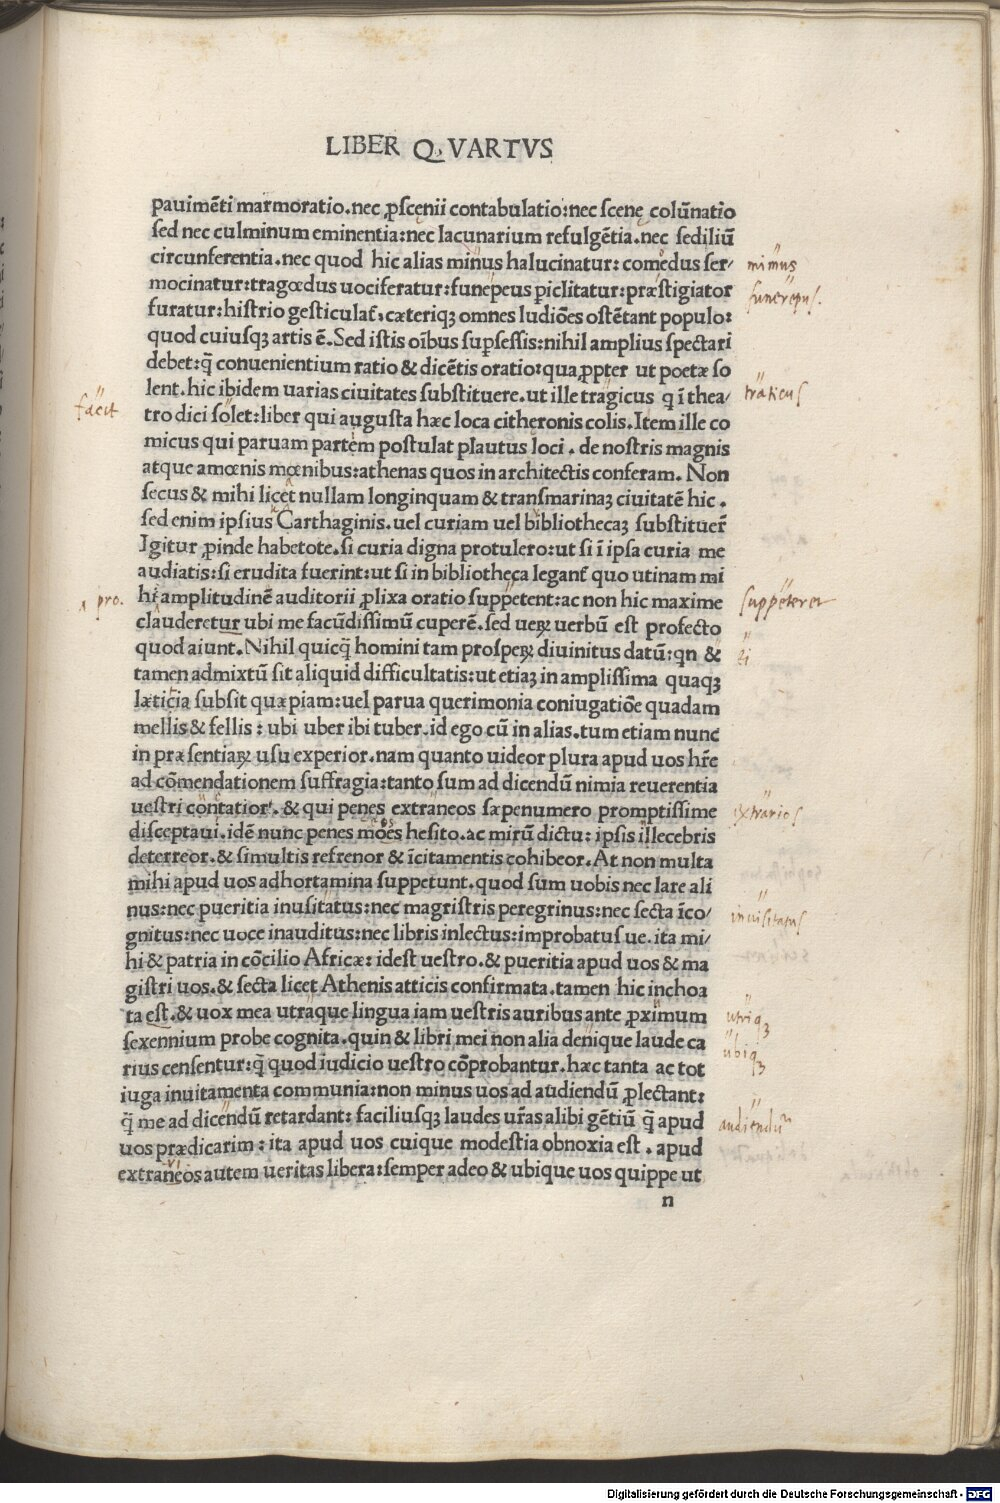 LIBER Q. VARTVS
pauimẽti marmoratio.nec ꝓscęnii contabulatio:nec scenę colũnatio
sed nec culminum eminentia:nec lacunarium refulgẽtia.nec sediliũ
circunferentia.nec quod hic alias minus halucinatur: comędus ser/
mimus
mocinatur:tragœdus uociferatur:funepeus ꝑiclitatur:præstigiator
funerepus.
furatur:histrio gesticulat᷑, cæteriqꝫ omnes ludiões ostẽtant populo:
quod cuiusqꝫ artis ẽ.Sed istis oĩbus suꝑsessis:nihil amplius spectari
debet:q̃ conuenientium ratio & dicẽtis oratio:qua ꝓpter ut poetæ so
lent.hic ibidem uarias ciuitates substituere.ut ille tragicus q ĩ thea/
traticus
facit
tro dici solet:liber qui augusta hæc loca citheronis colis.Item ille co
micus qui paruam partem postulat plautus loci . de nostris magnis
atque amœnis mœnibus:athenas quos in architectis conferam. Non
secus & mihi licet nullam longinquam & transmarinaꝫ ciuitatẽ hic .
sed enim ipsius Carthaginis.uel curiam uel bibliothecaꝫ substituer̃
Igitur ꝓinde habetote.si curia digna protulero:ut si ĩ ipsa curia me
audiatis:si erudita fuerint:ut si in bibliotheca legant᷑ quo utinam mi
pro.
hi amplitudinẽ auditorii ꝓlixa oratio suppetent:ac non hic maxime
suppeteret
clauderetur ubi me facũdissimũ cuperẽ.sed ueꝝ uerbũ est profecto
quod aiunt.Nihil quicq̃ homini tam prospeꝝ diuinitus datũ:qn &
ei
tamen admixtũ sit aliquid difficultatis:ut etiaꝫ in amplissima quaqꝫ
læticia subsit quæpiam:uel parua querimonia coniugatiõe quadam
mellis & fellis : ubi uber ibi tuber.id ego cũ in alias.tum etiam nunc
in præsentiaꝝ usu experior.nam quanto uideor plura apud uos hr̃e
ad cõmendationem suffragia:tanto sum ad dicendũ nimia reuerentia
uestri contatior᷑. & qui penes extraneos sæpenumero promptissime
extrarios
disceptaui.idẽ nunc penes moẽs hesito.ac mirũ dictu: ipsis illecebris
deterreor.& simultis refrenor & ĩcitamentis cohibeor.At non multa
mihi apud uos adhortamina suppetunt.quod sum uobis nec lare ali
nus:nec pueritia inusitatus:nec magristris peregrinus:nec secta ĩco/
inuisitatus
gnitus:nec uoce inauditus:nec libris inlectus:improbatus ue.ita mi/
hi & patria in cõcilio Africæ: idest uestro.& pueritia apud uos & ma
gistri uos.& secta licet Athenis atticis confirmata.tamen hic inchoa
ta est.& uox mea utraque lingua iam uestris auribus ante ꝓximum
utriqꝫ
sexennium probe cognita.quin & libri mei non alia denique laude ca
ubiqꝫ
rius censentur:q̃ quod iudicio uestro cõprobantur.hæc tanta ac tot
iuga inuitamenta communia:non minus uos ad audiendũ ꝓlectant:
q̃ me ad dicendũ retardant: faciliusqꝫ laudes ur̃as alibi gẽtiũ q̃ apud
audiendũ
uos prædicarim : ita apud uos cuique modestia obnoxia est . apud
extraneos autem ueritas libera:semper adeo & ubique uos quippe ut
n
Digitalisierung gefördert durch die Deutsche Forschungsgemeinschaft - DFG